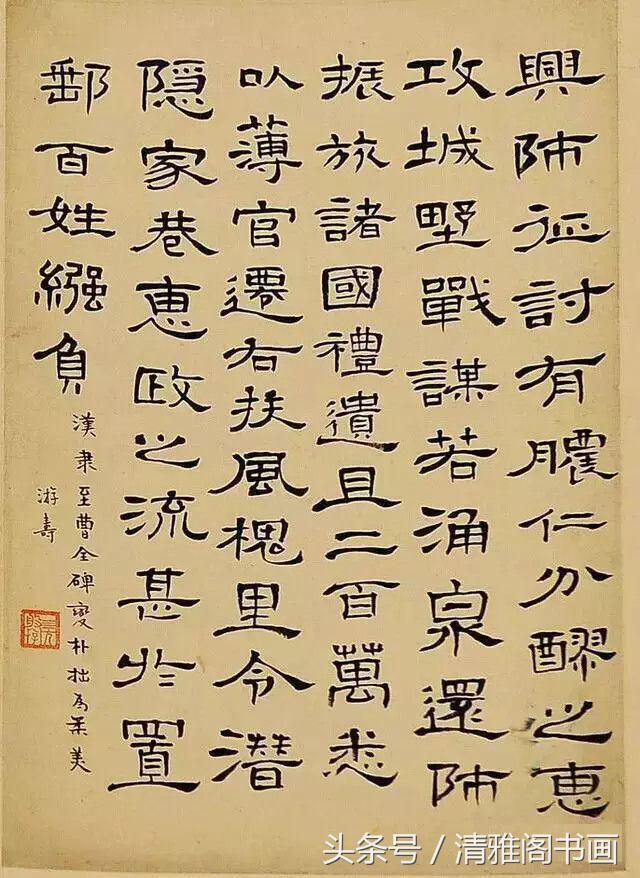 興師征討有臁仁分醪之惠
攻城墅戰謀若涌泉還師
振旅諸國禮遺且二百萬悉
以薄官遷右扶風槐里令潛
隐家巷惠政之流甚於置
郵百姓繦負
漢隶至曹全碑變朴拙爲柔美
游壽
头条号／清雅阁书画